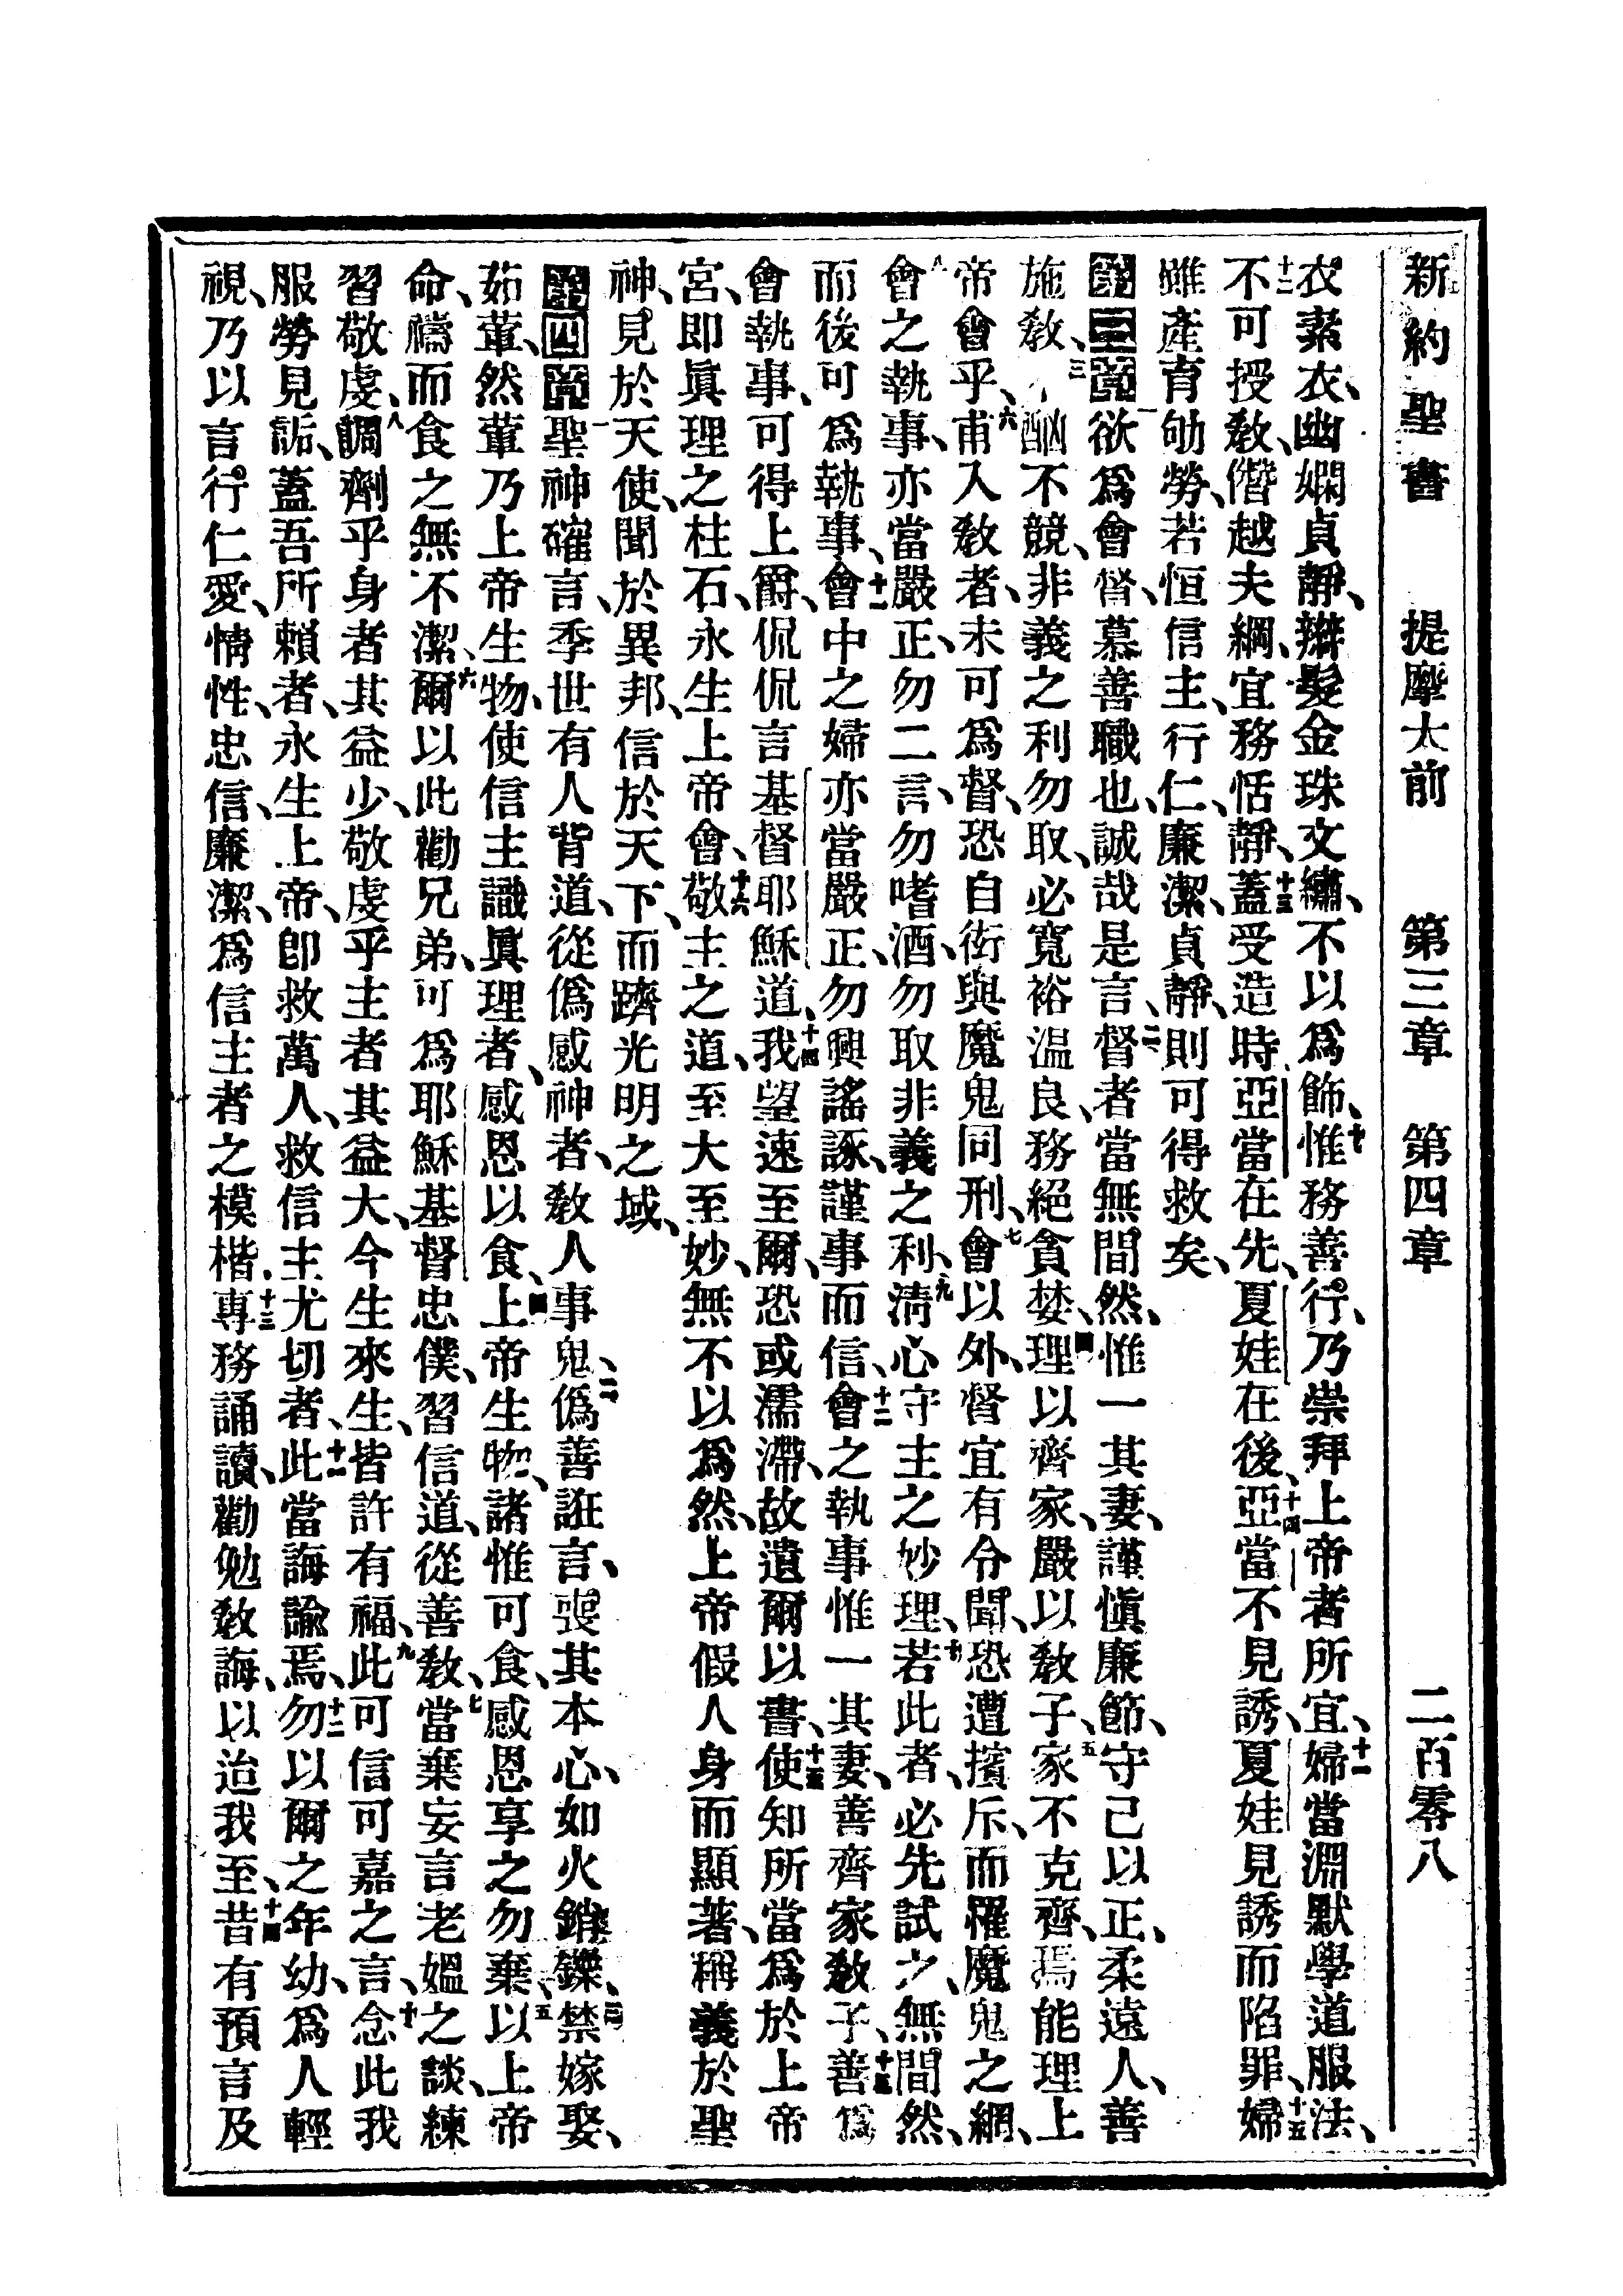 新約聖書 提摩太前 第三章 第四章 二百零八
衣素衣、幽嫻貞靜、辮髮金珠文繡、不以爲飾、十惟務善行、乃崇拜上帝者所宜、十一婦當淵默學道服法、
十二不可授教、僭越夫綱、宜務恬靜、十三蓋受造時亞當在先、夏娃在後、十四亞當不見誘、夏娃見誘而陷罪、十五婦
雖產育劬勞、若恒信主、行仁、廉潔、貞靜、則可得救矣、
第三章一欲爲會督、慕善職也、誠哉是言、二督者當無間然、惟一其妻、謹愼廉節、守己以正、柔遠人、善
施教、三不酗不競、非義之利勿取、必寬裕温良、務絕貪婪、四理以齊家、嚴以教子、五家不克齊、焉能理上
帝會乎、六甫入教者、未可爲督、恐自衒與魔鬼同刑、七會以外、督宜有令聞、恐遭擯斥、而罹魔鬼之網、
八會之執事、亦當嚴正、勿二言、勿嗜酒、勿取非義之利、九淸心守主之妙理、十若此者、必先試之、無間然、
而後可爲執事、十一會中之婦亦當嚴正、勿興謠諑、謹事而信、十二會之執事惟一其妻、善齊家教子、十三善爲
會執事、可得上爵、侃侃言基督耶穌道、十四我望速至爾、恐或濡滯、故遺爾以書、十五使知所當爲於上帝
宮、即眞理之柱石、永生上帝會、十六敬主之道、至大至妙、無不以爲然、上帝假人身而顯著、稱義於聖
神、見於天使、聞於異邦、信於天下、而躋光明之域、
第四章一聖神確言、季世有人背道、從僞感神者、敎人事鬼、二僞善誑言、喪其本心、如火銷鑠、三禁嫁娶、
茹葷、然葷乃上帝生物、使信主識眞理者、感恩以食、四上帝生物、諸惟可食、感恩享之勿棄、五以上帝
命、禱而食之無不潔、六爾以此勸兄弟、可爲耶穌基督忠僕、習信道、從善教、七當棄妄言老嫗之談、練
習敬虔、八調劑乎身者其益少、敬虔乎主者其益大、今生來生、皆許有福、九此可信可嘉之言、十念此我
服勞見詬、蓋吾所賴者、永生上帝、卽救萬人、救信主尤切者、十一此當誨諭焉、十二勿以爾之年幼、爲人輕
視、乃以言行、仁愛、情性、忠信、廉潔、爲信主者之模楷、十三專務誦讀、勸勉教誨、以迨我至、十四昔有預言及